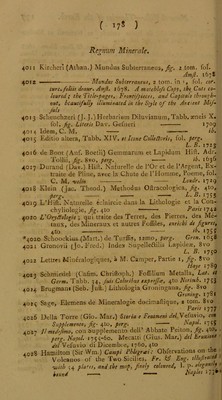 ( 178 )
Regnum Minerale.
4011 Kircheri (Athan.) Mundus Subterraneus, fig. 2 tom. fol.
Amst. 1678
4012 ——— Mundus Subterraneus, 2 tom. in 1, fol. cor.
Amst. 1678. A matchless Copy, the Cuts co-
loured; the Title-pages, Frontispieces, and Capitals through-
out, beautifully illuminated in the Style of the Ancient Mis-
sals
4013 Scheuchzeri (J. J.) Herbarium Diluvianum, Tabb. æneis X.
fol. fig. Literis Dav. Gesneri 1709
4014 Idem, C. M.
4015 Editio altera, Tabb. XIV. et Icone Collectoris, fol. perg.
L. B. 1723
4016 de Boot (Ans. Boetii) Gemmarum et Lapidum Hist. Ad.
Tollii, fig. 8vo, perg. ib. 1636
4017 Durand (Dav.) Hist. Naturelle de l'Or et de l'Argent, Ex-
traite de Pline, avec le Chute de l'Homme, Poeme, fol.
C. M. velin Londr. 1729
4018 Klein (Jac. Theod.) Methodus Ostracologica, fig. 4to,
4019 L'Hist. Naturelle éclaircie dans la Lithologie et la Con-
chyliologie, fig. 4to Paris 1742
4020 L'Oryctologie; qui traite des Terres, des Pierres, des Mé-
taux, des Minéraux et autres Fossiles, enrichi de figures,
4to ib. 1755
4020* Schoockius (Mart.) de Turffis, 12mo, perg. Gron. 1658
4021 Gronovii (Jo. Fred.) Index Supellectilis Lapideæ, 8vo
L. B. 1750
4022 Lettres Minéralogiques, à M. Camper, Partie 1, fig. 8vo
4023 Schmiedel (Casim. Christoph.) Fossilium Metalla, Lat. et
Germ. Tabb. 24, suis Coloribus expressæ, 4to Norimb. 1753
4024 Brugmans (Seb. Just.) Lithologia Groningana, fig. 8vo
Groning. 1781
4025 Sage, Elemens de Minéralogie docimastique, 2 tom. 8vo
Paris 1777
4026 Della Torre (Gio. Mar.) Storia e Fenomeni del Vesuvio, con
Supplemento, fig. 4to, perg. Napoli 1755
4027 Il medesimo, con supplemento dell' Abbate Peiton, fig. 4to
perg. Napoli 1755-60. Mecatti (Gius. Mar.) del Bruciante
sul Vesuvio di Decembre, 1760, 4to
4028 Hamilton (Sir Wm.) Campi Phlegræi: Observations on the
Volcanos of the Two Sicilies, Fr. &amp; Eng. illustrated
with 54 plates, and the map, finely coloured, l. p. elegantly
bound Naples 1776